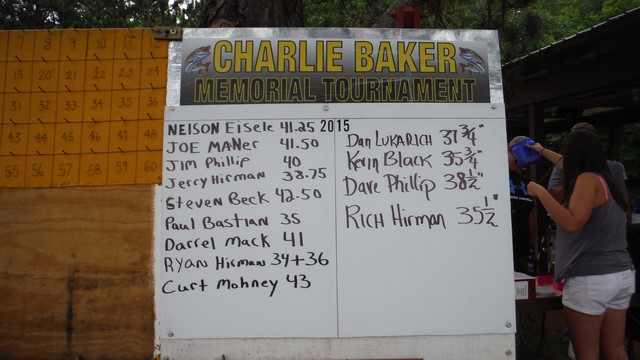 CHARLIE BAKER
MEMORIAL TOURNAMENT
2015
NEISON Eisele 41.25
JOE MANer 41.50
Jim Phillip 40
Jerry Hirman 38.75
Steven Beck 42.50
Paul Bastian 35
Darrel Mack 41
RYAN Hirman 34+36
Curt Mohney 43
Dan LUKARICH 37 3/4"
Kevin Black 35 3/4"
Dave Phillip 38 1/2"
RICH Hirman 35 1/2"
7 8 9 10 11 12
19 20 21 22 23 24
31 32 33 34 35 36
43 44 45 46 47 48
55 56 57 58 59 60